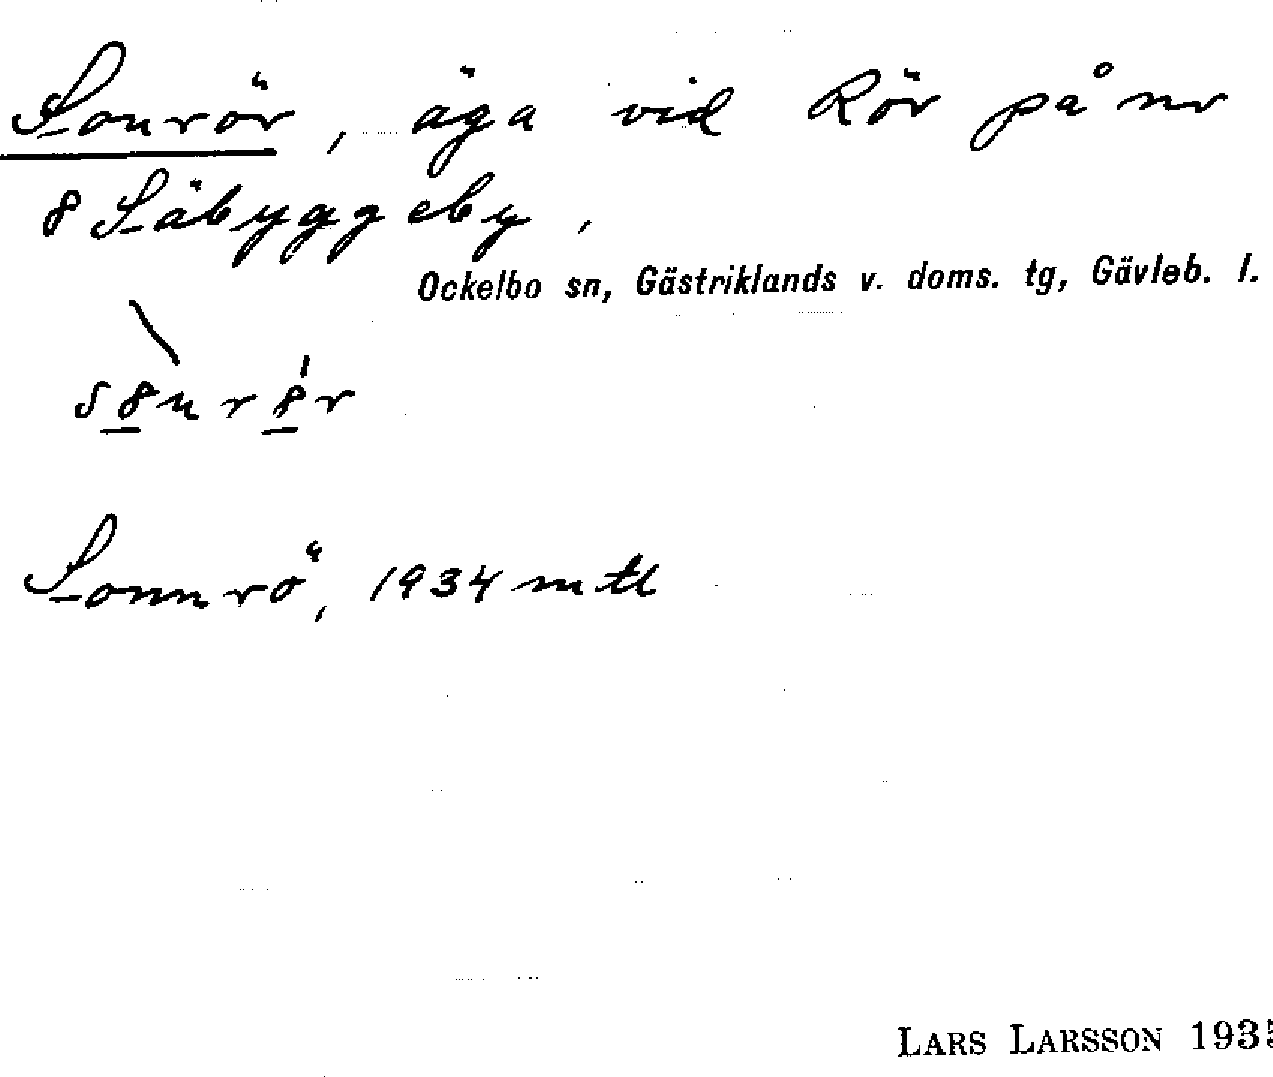 Sonrör, äga vid Rör på nr
8 Säbyggeby,
Ockelbo sn, Gästriklands v. doms. tg, Gävleb. l.
s8nr8r
Sonnrö, 1934 mtl
LARS LARSSON 1935